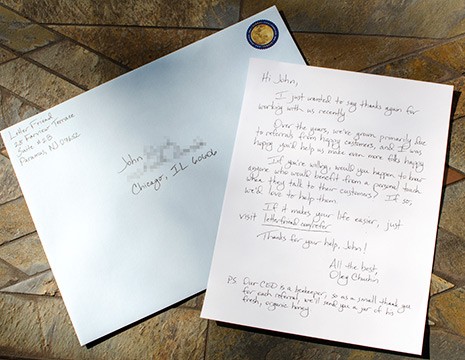 Letter Friend
25 Fairview Terrace
Suite #2B
Paramus, NJ 07652
John
Chicago, IL 60606
Hi John,
I just wanted to say thanks again for
working with us recently.
Over the years, we've grown primarily due
to referrals from happy customers, and I was
hoping you'd help us make even more folks happy.
If you're willing, would you happen to know
anyone who would benefit from a personal touch
when they talk to their customers? If so,
we'd love to help them.
If it makes your life easier, just
visit letterfriend.com/refer
Thanks for your help, John!
All the best,
Oleg
PS. Our CEO is a beekeeper, so as a small thank you
for each referral, we'll send you a jar of his
fresh, organic honey